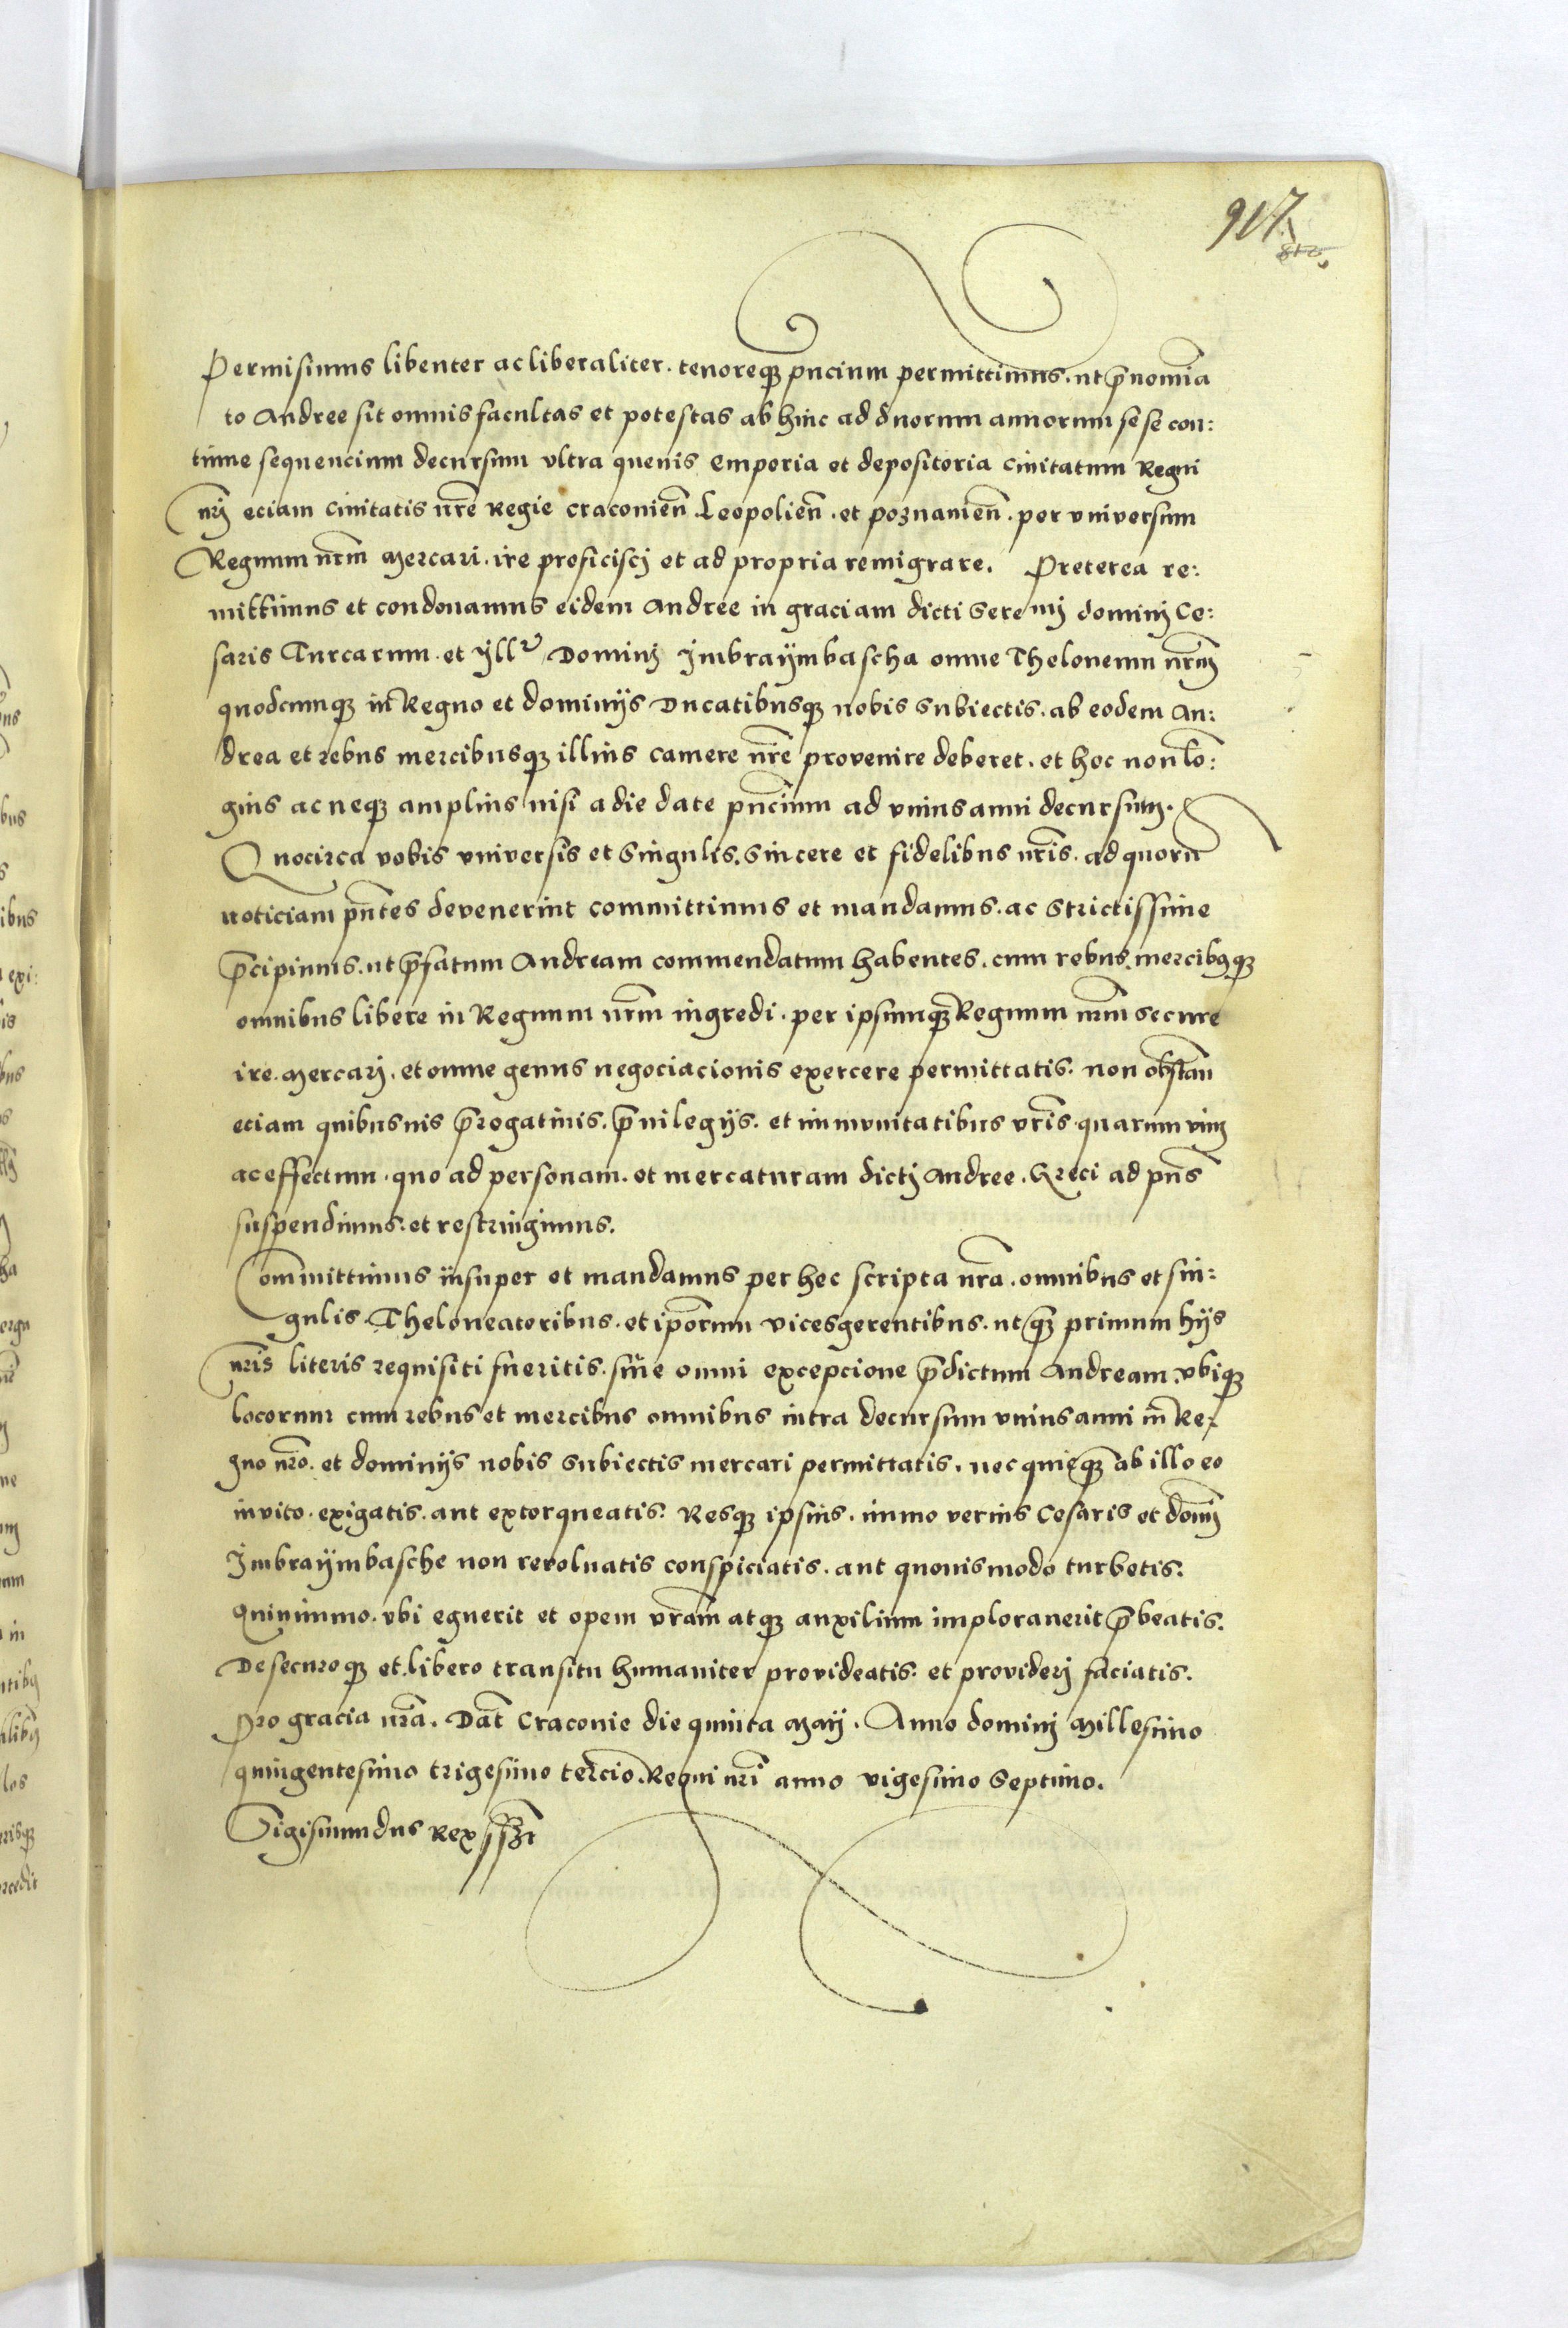 917
Permisimus libenter ac liberaliter. tenoreq̃ pñcium permittimus. ut p̃nomina
to Andree sit omnis facultas et potestas ab hinc ad duorum annorum sese con:
tinue sequencium decursum vltra queuis emporia et depositoria ciuitatum Regni
nrj eciam ciuitatis nr̃e Regie cracovieñ Leopolieñ. et poznanieñ. per vniversum
Regnum nr̃m Mercari. ire proficiscj et ad propria remigrare. Preterea re:
mittimus et condonamus eidem Andree in graciam dicti Serenmj dominj Ce:
saris Turcarum. et Jllr Dominj Jmbraÿmbascha omne Theloneum nr̃m
quodcunqz in Regno et dominijs Ducatibusqz nobis Subiectis. ab eodem An:
drea et rebus mercibusqz illius camere nr̃e provenire deberet. et hoc non lõ:
gius ac neqz amplius nisi a die date pñcium ad vnius anni decursum.
Quocirca vobis vniversis et Singulis. Sincere et fidelibus nr̃is. ad quorũ
noticiam pñtes devenerint committimus et mandamus. ac Strictissime
p̃cipimus. ut p̃fatum Andream commendatum habentes. cum rebus. mercibqz
omnibus libere in Regnum nr̃m ingredi. per ipsumqz Regnum nr̃m secure
ire. Mercarj. et omne genus negociacionis exercere permittatis. non obstañ
eciam quibusuis p̃rogatiuis. p̃uilegijs. et immunitatibus vr̃is quarum vim
ac effectum. quo ad personam. et mercaturam dictj Andree. Greci ad pñs
suspendimus. et restringimus.
Committimus insuper et mandamus per hec scripta nr̃a. omnibus et sin:
gulis. Theloneatoribus. et ip̃orum vicesgerentibus. ut qz primum hijs
nr̃is literis requisiti fueritis. sine omni excepcione p̃dictum Andream. vbiqz
locorum cum rebus et mercibus omnibus intra decursum vnius anni in Re:
gno nr̃o. et dominijs nobis Subiectis mercari permittatis. nec quicqz ab illo eo
invito. exigatis. aut extorqueatis. Resqz ipsius. immo verius Cesaris et domj
Jmbraÿmbasche non revoluatis conspiciatis. aut quouismodo turbetis.
Quinimmo. vbi eguerit et opem vr̃am atqz auxilium implorauerit p̃beatis.
De securoqz et libero transitu humaniter provideatis. et providerj faciatis.
Pro gracia nr̃a. Dat̃ Cracovie die quinta Maij. Anno dominj Millesimo
quingentesimo trigesimo tercio. Regni nr̃i anno vigesimo Septimo.
Sigismundus Rex sszt